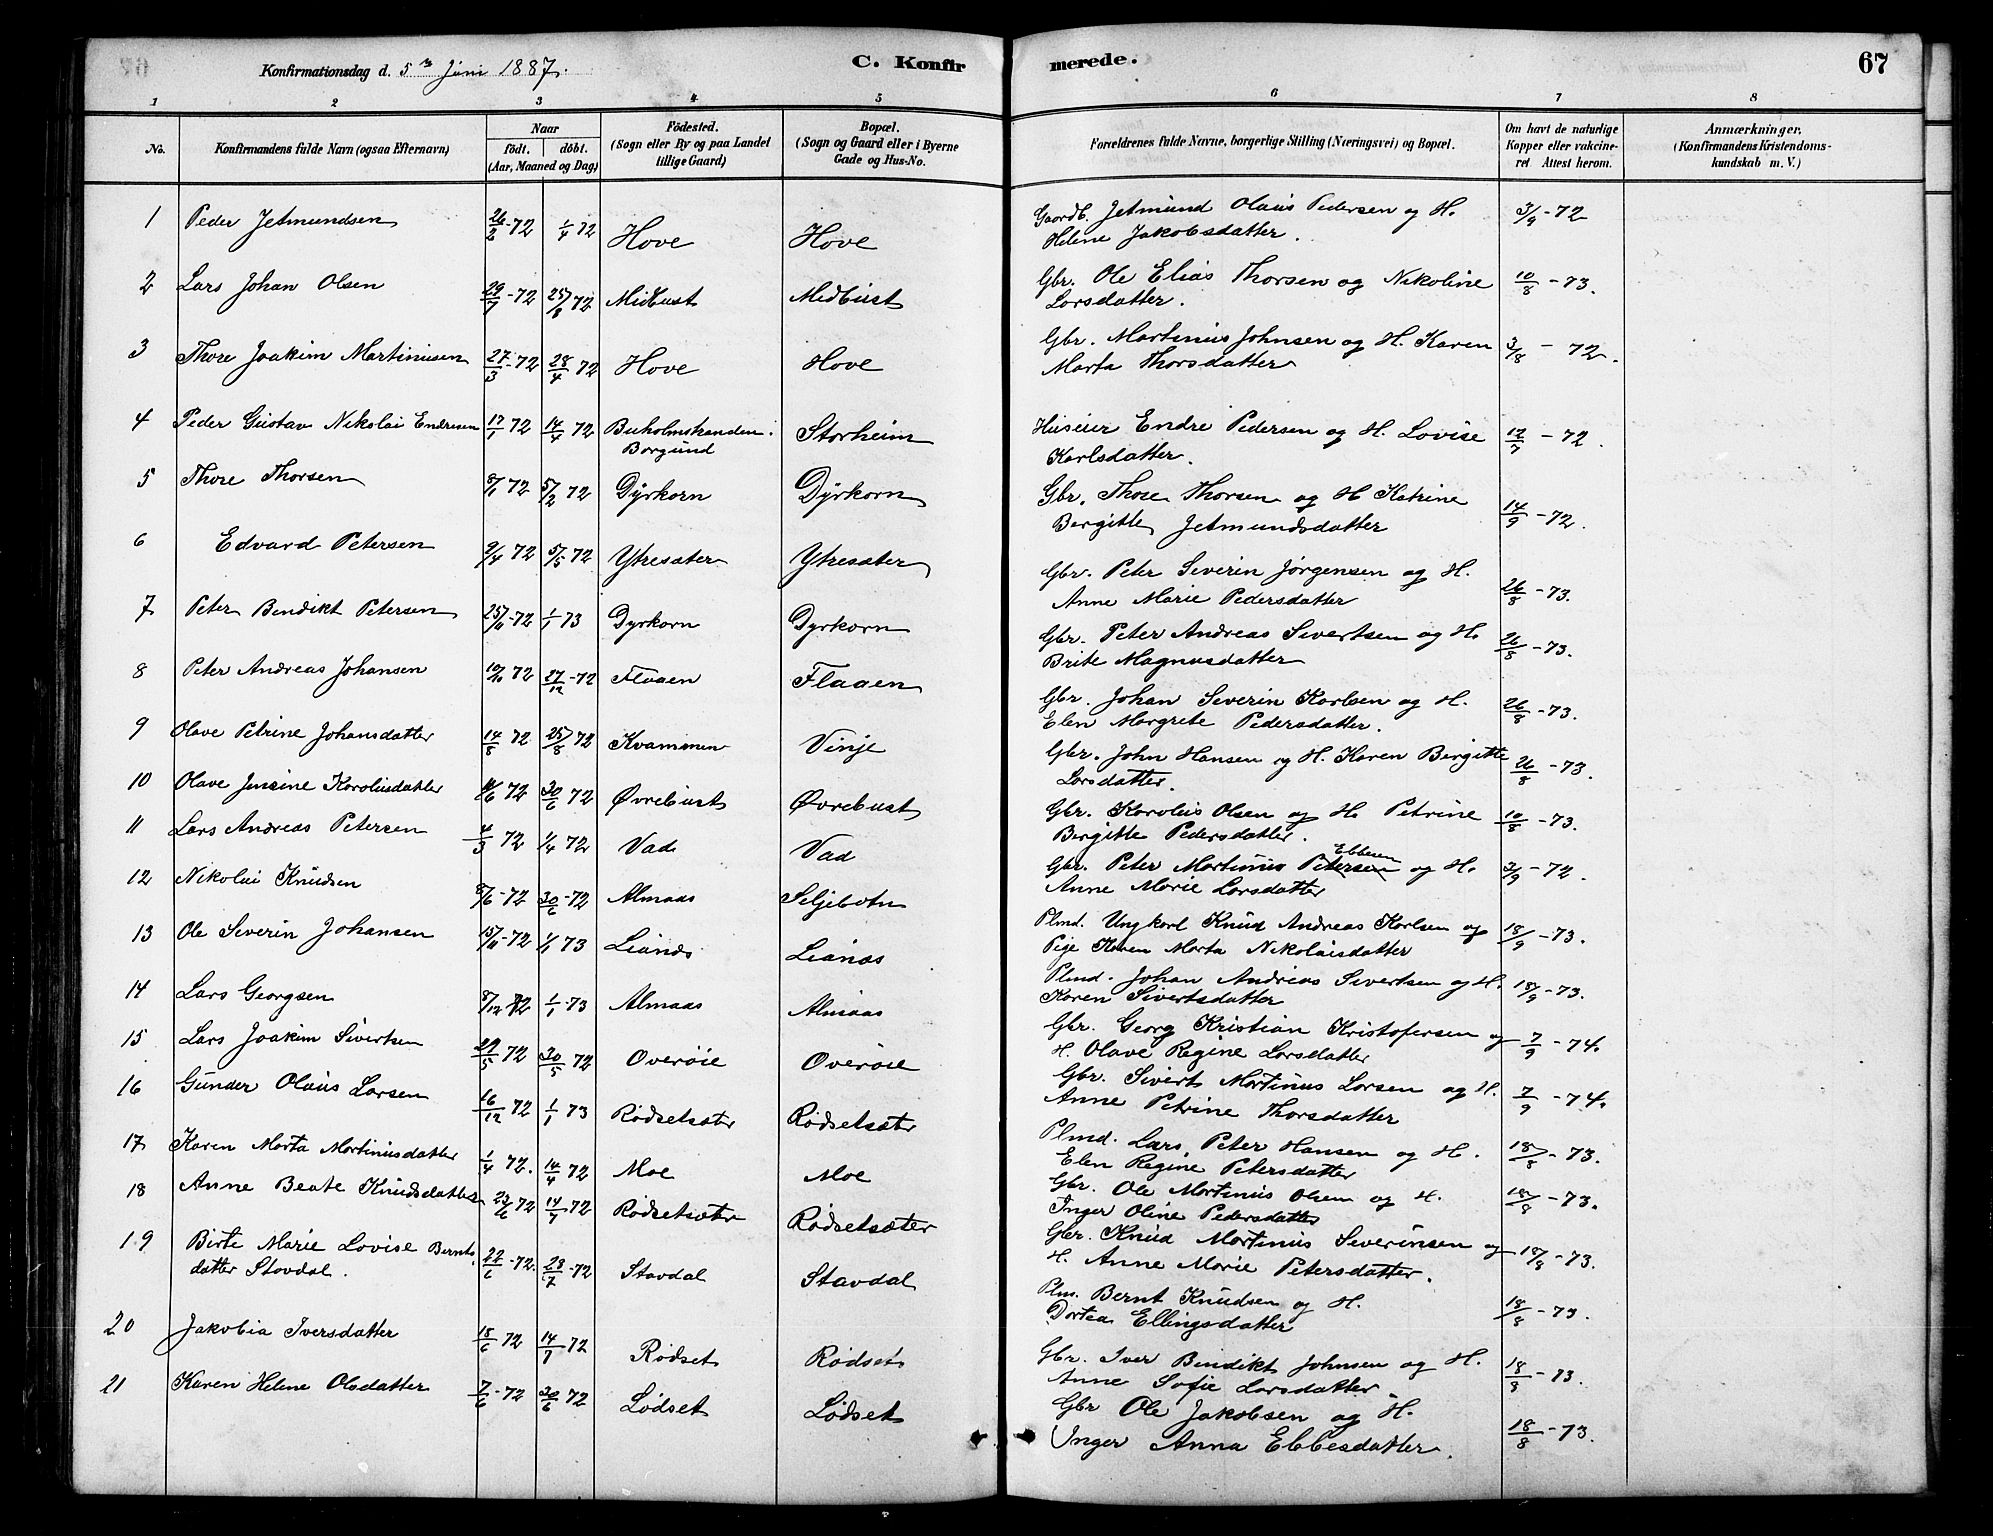 Konfirmationsdag d. 5te Juni 1887.
C. Konfirmerede.
67
1 2 3 4 5 6 7 8
No.
Konfirmandens fulde Navn (ogsaa Efternavn)
Naar
födt. döbt.
(Aar, Maaned og Dag)
Födested.
(Sogn eller By og paa Landet
tillige Gaard)
Bopæl.
(Sogn og Gaard eller i Byerne
Gade og Hus-No.
Forældrenes fulde Navne, borgerlige Stilling (Næringsvei) og Bopæl.
Om havt de naturlige
Kopper eller vakcine-
ret Attest herom.
Anmærkninger,
(Konfirmandens Kristendoms-
kundskab m. V.)
1 Peder Jetmundsen 26/2-72 1/4 72 Hove Hove Gaardb. Jetmund Olaus Pedersen og H. 3/9-72
Helene Jakobsdatter.
2 Lars Johan Olsen 29/7-72 25/8 72 Midbust Midbust Gbr. Ole Elias Thorsen og Nikoline 10/8-73.
Larsdatter.
3 Thore Joakim Martinusen 27/3-72 28/4 72 Hove Hove Gbr. Martinus Johnsen og H. Karen 3/8-72.
Marta Thorsdatter
4 Peder Gustav Nikolai Endresen 17/1 72 14/4 72 Buholmstranden. Storheim Huseier Endre Pedersen og H. Lovise 12/7-72.
Borgund Karlsdatter.
5 Thore Thorsen 8/1 72 5/2 72 Dyrkorn Dyrkorn Gbr. Thore Thorsen og H Katrine 14/9-72.
Bergitte Jetmundsdatter
6 Edvard Petersen 9/4 72 5/5 72 Ytresæter Ytresæter Gbr. Peter Severin Jørgensen og H. 26/8-73.
Anne Marie Pedersdatter
7 Peter Bendikt Petersen 25/11-72 1/1 73 Dyrkorn Dyrkorn Gbr. Peter Andreas Sivertsen og H. 26/8-73.
Brite Magnusdatter
8 Peter Andreas Johansen 10/10 72 27/12-72 Flaaen Flaaen Gbr. Johan Severin Karlsen og H. 26/8-73.
Elen Margrete Pedersdatter.
9 Olave Petrine Johansdatter 14/8 72 25/8 72 Kvammen Vinje Gbr. John Hansen og H. Karen Birgitte 26/8-73.
Larsdatter.
10 Olave Jensine Karolusdatter /6 72 30/6 72 Øvrebust Øvrebust Gbr. Karolus Olsen og H. Petrine 10/8-73.
Bergitte Pedersdatter.
11 Lars Andreas Petersen 4/3 72 1/4 72 Vad Vad Gbr. Peter Martinus Petersen Ebbesen og H. 3/9-72.
Anne Marie Larsdatter
12 Nikolai Knudsen 8/6-72 30/6-72 Almaas Seljebotn Plmd. Ungkarl Knud Andreas Karlsen og 18/9-73.
Pige Karen Marta Nikolaisdatter
13 Ole Severin Johansen 15/11-72 1/1 73 Lianes Lianes Plmd. Johan Andreas Sivertsen og H. 18/9-73.
Karen Sivertsdatter
14 Lars Georgsen 8/12 72 1/1-73 Almaas Almaas Gbr. Georg Kristian Kristofersen og 7/9-74.
H. Olave Regine Larsdatter
15 Lars Joakim Sivertsen 29/5 72 30/5 72 Overøie Overøie Gbr. Sivert Martinus Larsen og H. 7/9-74.
Anne Petrine Thorsdatter
16 Gunder Olaus Larsen 16/12 72 1/1 73 Rødsetsæter Rødsetsæter Plmd. Lars Peter Hansen og H. 18/8-73.
Elen Regine Petersdatter
17 Karen Marta Martinusdatter 1/4 72. 14/4 72 Moe Moe Gbr. Ole Martinus Olsen og H. 18/8-73.
Inger Oline Pedersdatter
18 Anne Beate Knudsdatter 23/6 72 14/7 72 Rødsetsæter Rødsetsæter Gbr. Knud Martinus Severinsen og 18/8-73.
H. Anne Marie Petersdatter.
19 Birte Marie Lovise Bernts 22/6-72. 28/7-72 Stavdal Stavdal Plm. Bernt Knudsen og H. 18/8-73.
datter Stavdal. Dortea Ellingsdatter
20 Jakobia Iversdatter 18/6 72 14/7 72 Rødset Rødset Gbr. Iver Bendikt Johnsen og H. 18/8-73.
Anne Sofie Larsdatter
21 Karen Helene Olsdatter 7/6-72 30/6 72 Lødset Lødset Gbr Ole Jakobsen og H. 18/8-73.
Inger Anna Ebbesdatter.